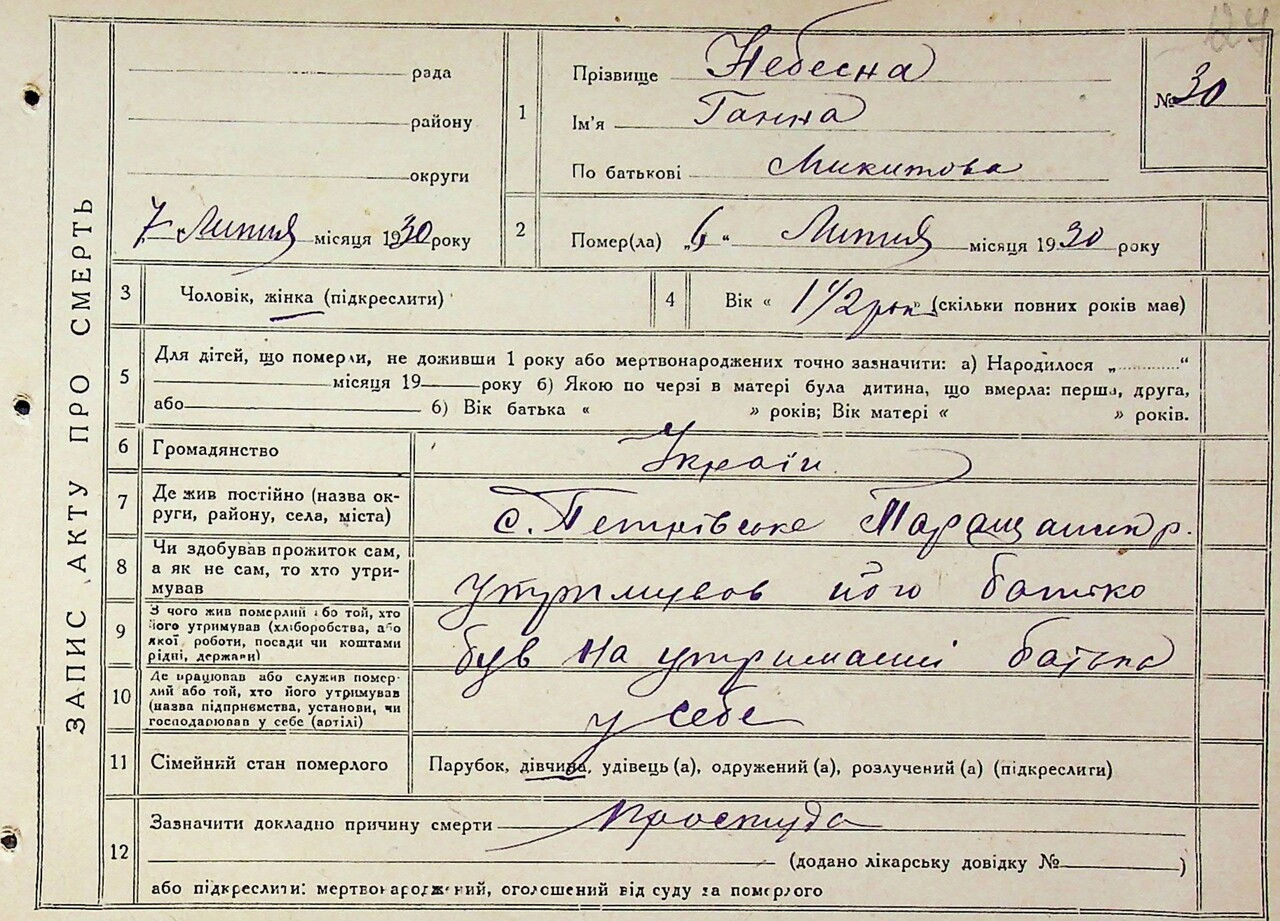 ЗАПИС АКТУ ПРО СМЕРТЬ
рада
району
округи
7 Липня місяця 1930 року
1
Прізвище Небесна
Ім'я Ганна
По батькові Микитова
№ 30
2
Помер(ла) „6“ Липня місяця 1930 року
3
Чоловік, жінка (підкреслити)
4
Вік « 1 1/2 рок » (скільки повних років має)
5
Для дітей, що померли, не доживши 1 року або мертвонароджених точно зазначити: а) Народилося „............“
місяця 19 року б) Якою по черзі в матері була дитина, що вмерла: перша, друга,
або б) Вік батька « » років; Вік матері « » років.
6
Громадянство
Україн
7
Де жив постійно (назва ок-
руги, району, села, міста)
с. Петрівське Таращанск р.
8
Чи здобував прожиток сам,
а як не сам, то хто утри-
мував
утримував його батько
9
З чого жив померлий або той, хто
його утримував (хліборобства, або
якої роботи, посади чи коштами
рідні, держави)
був на утриманні батька
10
Де працював або служив помер-
лий або той, хто його утримував
(назва підприємства, установи, чи
господарював у себе (артілі)
у себе
11
Сімейний стан померлого
Парубок, дівчина, удівець (а), одружений (а), розлучений (а) (підкреслити)
12
Зазначити докладно причину смерти простуда
(додано лікарську довідку № )
або підкреслити: мертвонароджений, оголошений від суду за померлого